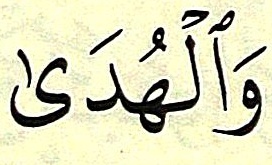 وَٱلْهُدَىٰ